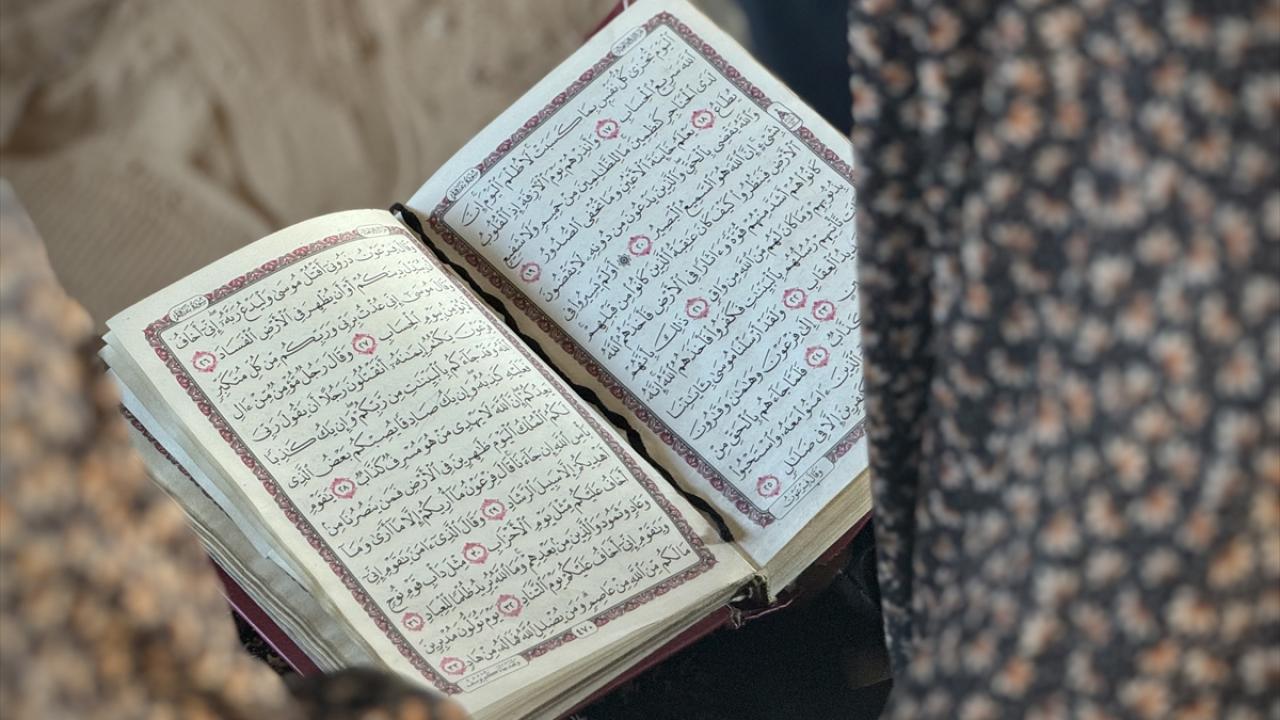 ٱلۡيَوۡمَ تُجۡزَىٰ كُلُّ نَفۡسِۭ بِمَا كَسَبَتۡۚ لَا ظُلۡمَ ٱلۡيَوۡمَۚ إِنَّ
ٱللَّهَ سَرِيعُ ٱلۡحِسَابِ ١٧ وَأَنذِرۡهُمۡ يَوۡمَ ٱلۡأٓزِفَةِ إِذِ ٱلۡقُلُوبُ
لَدَى ٱلۡحَنَاجِرِ كَٰظِمِينَۚ مَا لِلظَّٰلِمِينَ مِنۡ حَمِيمٖ وَلَا شَفِيعٖ
يُطَاعُ ١٨ يَعۡلَمُ خَآئِنَةَ ٱلۡأَعۡيُنِ وَمَا تُخۡفِي ٱلصُّدُورُ ١٩
وَٱللَّهُ يَقۡضِي بِٱلۡحَقِّۖ وَٱلَّذِينَ يَدۡعُونَ مِن دُونِهِۦ لَا يَقۡضُونَ
بِشَيۡءٍۗ إِنَّ ٱللَّهَ هُوَ ٱلسَّمِيعُ ٱلۡبَصِيرُ ٢٠ ۞ أَوَلَمۡ يَسِيرُواْ فِي
ٱلۡأَرۡضِ فَيَنظُرُواْ كَيۡفَ كَانَ عَٰقِبَةُ ٱلَّذِينَ كَانُواْ مِن قَبۡلِهِمۡۚ
كَانُواْ هُمۡ أَشَدَّ مِنۡهُمۡ قُوَّةٗ وَءَاثَارٗا فِي ٱلۡأَرۡضِ فَأَخَذَهُمُ ٱللَّهُ
بِذُنُوبِهِمۡ وَمَا كَانَ لَهُم مِّنَ ٱللَّهِ مِن وَاقٖ ٢١ ذَٰلِكَ بِأَنَّهُمۡ
تَّأۡتِيهِمۡ رُسُلُهُم بِٱلۡبَيِّنَٰتِ فَكَفَرُواْ فَأَخَذَهُمُ ٱللَّهُۚ إِنَّهُۥ
ٱلۡعِقَابِ ٢٢ وَلَقَدۡ أَرۡسَلۡنَا مُوسَىٰ بِـَٔايَٰتِنَا
٢٣ إِلَىٰ فِرۡعَوۡنَ وَهَٰمَٰنَ وَقَٰرُونَ
٢٤ فَلَمَّا جَآءَهُم بِٱلۡحَقِّ مِنۡ
ٱلَّذِينَ ءَامَنُواْ مَعَهُۥ وَٱسۡتَحۡيُواْ
إِلَّا فِي ضَلَٰلٖ ٢٥
وَقَالَ فِرۡعَوۡنُ
وَقَالَ فِرۡعَوۡنُ ذَرُونِيٓ أَقۡتُلۡ مُوسَىٰ وَلۡيَدۡعُ رَبَّهُۥٓۖ إِنِّيٓ أَخَافُ
أَن يُبَدِّلَ دِينَكُمۡ أَوۡ أَن يُظۡهِرَ فِي ٱلۡأَرۡضِ ٱلۡفَسَادَ ٢٦
وَقَالَ مُوسَىٰٓ إِنِّي عُذۡتُ بِرَبِّي وَرَبِّكُم مِّن كُلِّ مُتَكَبِّرٖ
لَّا يُؤۡمِنُ بِيَوۡمِ ٱلۡحِسَابِ ٢٧ وَقَالَ رَجُلٞ مُّؤۡمِنٞ مِّنۡ ءَالِ
فِرۡعَوۡنَ يَكۡتُمُ إِيمَٰنَهُۥٓ أَتَقۡتُلُونَ رَجُلًا أَن يَقُولَ رَبِّيَ
ٱللَّهُ وَقَدۡ جَآءَكُم بِٱلۡبَيِّنَٰتِ مِن رَّبِّكُمۡۖ وَإِن يَكُ كَٰذِبٗا
فَعَلَيۡهِ كَذِبُهُۥۖ وَإِن يَكُ صَادِقٗا يُصِبۡكُم بَعۡضُ ٱلَّذِي
يَعِدُكُمۡۖ إِنَّ ٱللَّهَ لَا يَهۡدِي مَنۡ هُوَ مُسۡرِفٞ كَذَّابٞ ٢٨ يَٰقَوۡمِ
لَكُمُ ٱلۡمُلۡكُ ٱلۡيَوۡمَ ظَٰهِرِينَ فِي ٱلۡأَرۡضِ فَمَن يَنصُرُنَا مِنۢ
بَأۡسِ ٱللَّهِ إِن جَآءَنَاۚ قَالَ فِرۡعَوۡنُ مَآ أُرِيكُمۡ إِلَّا مَآ أَرَىٰ وَمَآ
أَهۡدِيكُمۡ إِلَّا سَبِيلَ ٱلرَّشَادِ ٢٩ وَقَالَ ٱلَّذِيٓ ءَامَنَ يَٰقَوۡمِ إِنِّيٓ
أَخَافُ عَلَيۡكُم مِّثۡلَ يَوۡمِ ٱلۡأَحۡزَابِ ٣٠ مِثۡلَ دَأۡبِ قَوۡمِ نُوحٖ
وَعَادٖ وَثَمُودَ وَٱلَّذِينَ مِنۢ بَعۡدِهِمۡۚ وَمَا ٱللَّهُ يُرِيدُ ظُلۡمٗا لِّلۡعِبَادِ ٣١
وَيَٰقَوۡمِ إِنِّيٓ أَخَافُ عَلَيۡكُمۡ يَوۡمَ ٱلتَّنَادِ ٣٢ يَوۡمَ تُوَلُّونَ مُدۡبِرِينَ
مَا لَكُم مِّنَ ٱللَّهِ مِنۡ عَاصِمٖۗ وَمَن يُضۡلِلِ ٱللَّهُ فَمَا لَهُۥ مِنۡ هَادٖ ٣٣